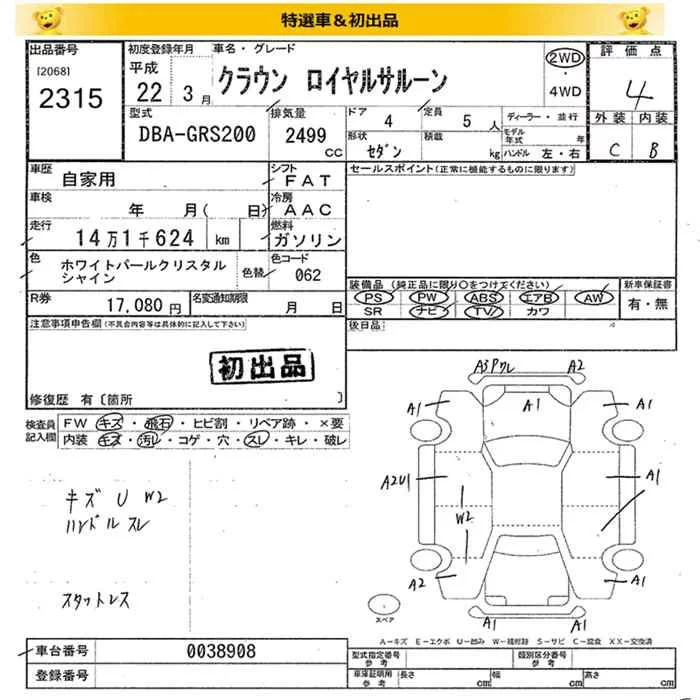 特選車＆初出品
出品番号
[2068]
2315
初度登録年月
平成
22 3月
車名・グレード
クラウン ロイヤルサルーン
2WD
・
4WD
評価点
4
外装 内装
C B
型式
DBA-GRS200
排気量
2499
CC
ドア
4
定員
5 人
形状
セダン
積載
kg
ディーラー・並行
モデル年式 年
ハンドル 左・右
車歴
自家用
シフト
FAT
車検
年 月( 日)
冷房
AAC
走行
14万1千624 km
燃料
ガソリン
色
ホワイトパールクリスタル
シャイン
色替
色コード
062
R券
17,080 円
名変通知期限
月 日
セールスポイント(正常に機能するものに限ります)
装備品 (純正品に限り○をつけてください)
PS PW ABS エアB AW
SR ナビ TV カワ
新車保証書
有・無
後日品
注意事項申告欄(不具合内容等は具体的に記入して下さい)
初出品
修復歴 有〔箇所 〕
検査員
記入欄
FW キズ・飛石・ヒビ割・リペア跡・×要
内装 キズ・汚レ・コゲ・穴・スレ・キレ・破レ
キズ U W2
ハンドル スレ
スタットレス
A3 Pワレ A2
A1 A1 A1
A2U1 A1
W2
A2 A1
A1 A1
スペア
A－キズ E－エクボ U－凹み W－補修跡 S－サビ C－腐食 XX－交換済
車台番号
0038908
登録番号
型式指定番号
参考
類別区分番号
参考
車庫証明用
参考
長さ cm 幅 cm 高さ cm